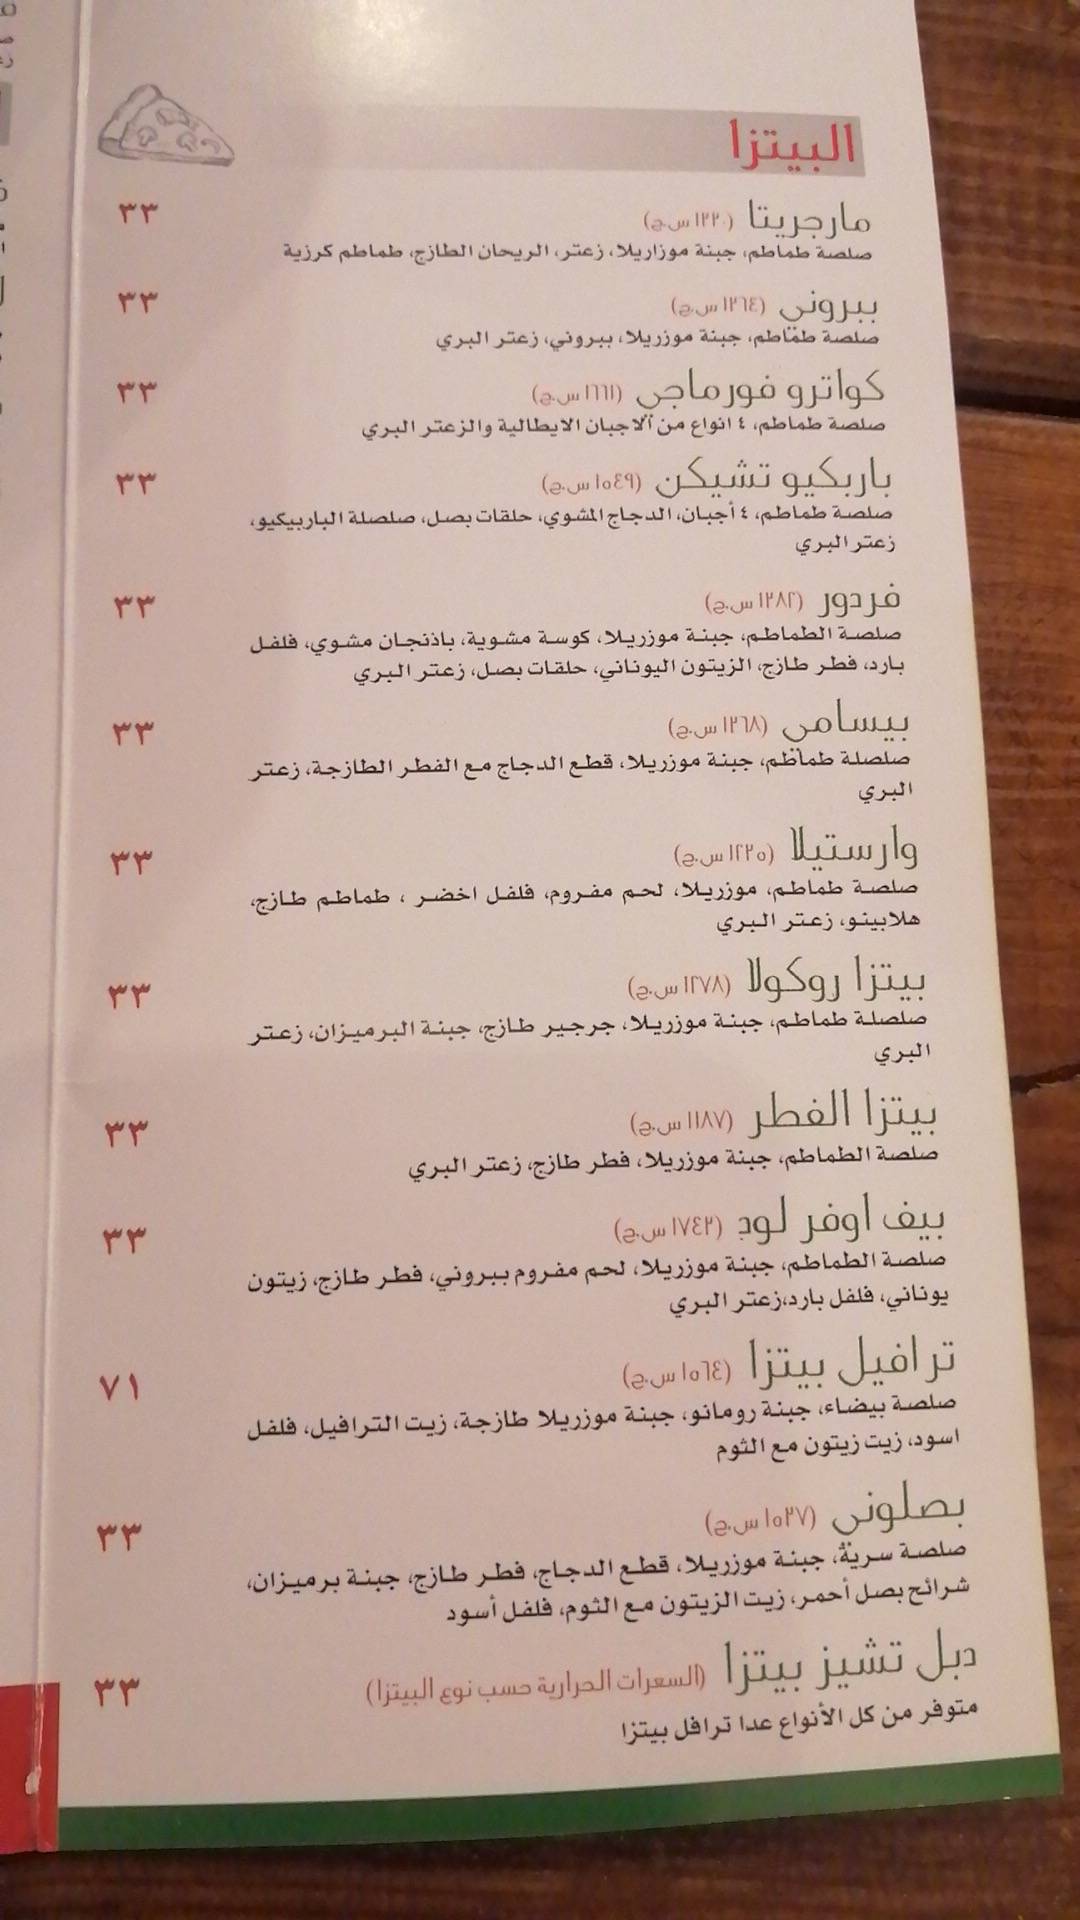 البيتزا
مارجريتا (١٢٢٠ س.ج) ٣٣
صلصة طماطم، جبنة موزاريلا، زعتر، الريحان الطازج، طماطم كرزية
ببروني (١٢٦٤ س.ج) ٣٣
صلصة طماطم، جبنة موزريلا، ببروني، زعتر البري
كواترو فورماجي (١٦٦١ س.ج) ٣٣
صلصة طماطم، ٤ انواع من الاجبان الايطالية والزعتر البري
باربكيو تشيكن (١٥٤٩ س.ج) ٣٣
صلصة طماطم، ٤ أجبان، الدجاج المشوي، حلقات بصل، صلصلة الباربيكيو،
زعتر البري
فردور (١٢٨٢ س.ج) ٣٣
صلصة الطماطم، جبنة موزريلا، كوسة مشوية، باذنجان مشوي، فلفل
بارد، فطر طازج، الزيتون اليوناني، حلقات بصل، زعتر البري
بيسامي (١٢٦٨ س.ج) ٣٣
صلصلة طماطم، جبنة موزريلا، قطع الدجاج مع الفطر الطازجة، زعتر
البري
وارستيلا (١٢٢٥ س.ج) ٣٣
صلصة طماطم، موزريلا، لحم مفروم، فلفل اخضر ، طماطم طازج،
هلابينو، زعتر البري
بيتزا روكولا (١٢٧٨ س.ج) ٣٣
صلصلة طماطم، جبنة موزريلا، جرجير طازج، جبنة البرميزان، زعتر
البري
بيتزا الفطر (١١٨٧ س.ج) ٣٣
صلصة الطماطم، جبنة موزريلا، فطر طازج، زعتر البري
بيف اوفر لود (١٧٤٢ س.ج) ٣٣
صلصة الطماطم، جبنة موزريلا، لحم مفروم ببروني، فطر طازج، زيتون
يوناني، فلفل بارد،زعتر البري
ترافيل بيتزا (١٥٦٤ س.ج) ٧١
صلصة بيضاء، جبنة رومانو، جبنة موزريلا طازجة، زيت الترافيل، فلفل
اسود، زيت زيتون مع الثوم
بصلوني (١٥٢٧ س.ج) ٣٣
صلصة سرية، جبنة موزريلا، قطع الدجاج، فطر طازج، جبنة برميزان،
شرائح بصل أحمر، زيت الزيتون مع الثوم، فلفل أسود
دبل تشيز بيتزا (السعرات الحرارية حسب نوع البيتزا) ٣٣
متوفر من كل الأنواع عدا ترافل بيتزا